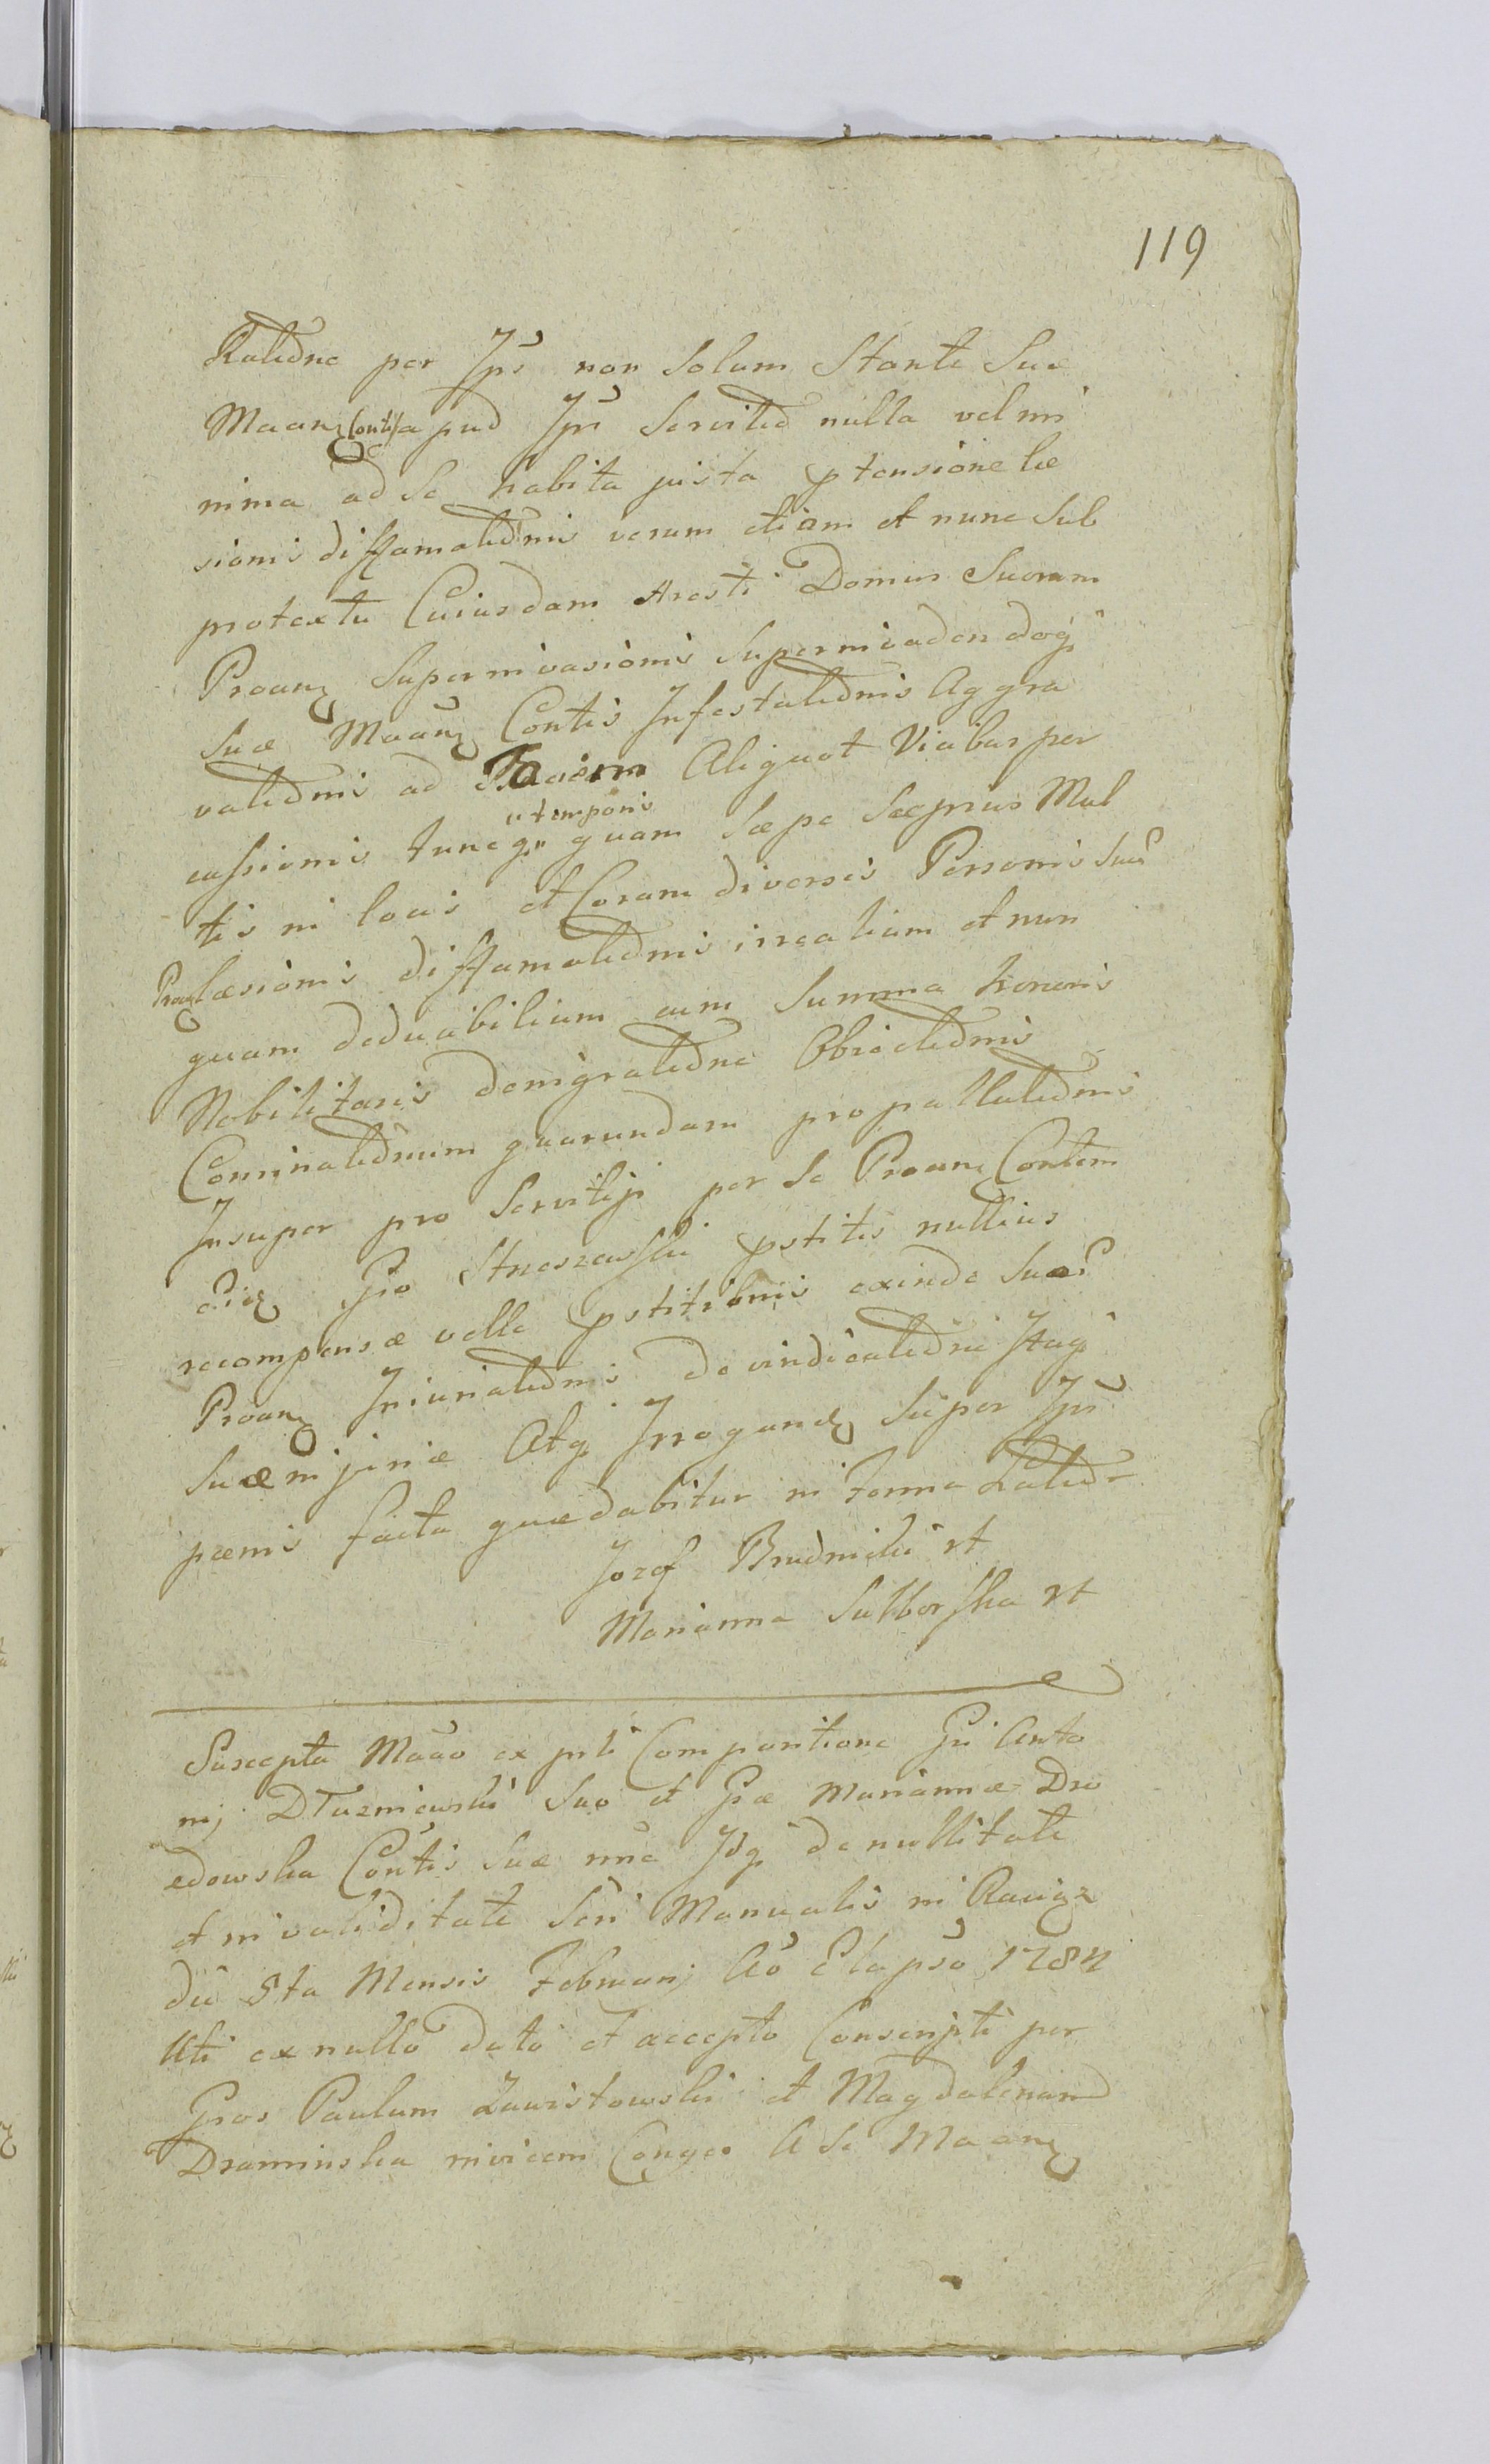 119
per Ips non solum Stante Sua
Maanz Contis apud Ips Servited nulla vel mi
nima ad se habita justa ptensione lae
sionis diffamatednis verum etiam et nunc sub
protextu Cuiusdam Aresti Domus Suorum
Proanz Superinvasionis
Suae Maanz Contis Infestatednis Aggra
vatednis ad Faciem Aliquot Vicibus per
cussionis tuncq. quam saepe saepius Mul
"temporis
tis in locis et Coram diversis Personis Suor
Proanz laesionis diffamatednis irrealium et nun
quam deducibilium cum Summa honoris
Nobilitaris denigratedne Obiectednis
Cominatednum quarundam propallatednis
Insuper pro Servitijs per se Proanz Contem
Gio pstitis nullius
recompensae velle pstitionis exinde Suor
Proanz Iniuriatednis de vindicatedne Itaq.
Suae injuriae Atq. Irrogand super Ips
paenis facta quae dabitur in Forma Lated
Jozef Brudnicki rt
Marianna rt
Suscepta Maao ex prti Comparitione Gsi Anto
nij Dluzniewski Suo et Gsae Mariannae Dro
zdowska Contis Suae nne Idq. de nullitate
et invaliditate Scri Manualis in
die 5ta Mensis Februarij Ao Elapso 1784
Uti ex nullo dato et accepto Conscripti per
Gsos Paulum Zawistowski et Magdalenam
Draminska invicem Conges A se Maanz